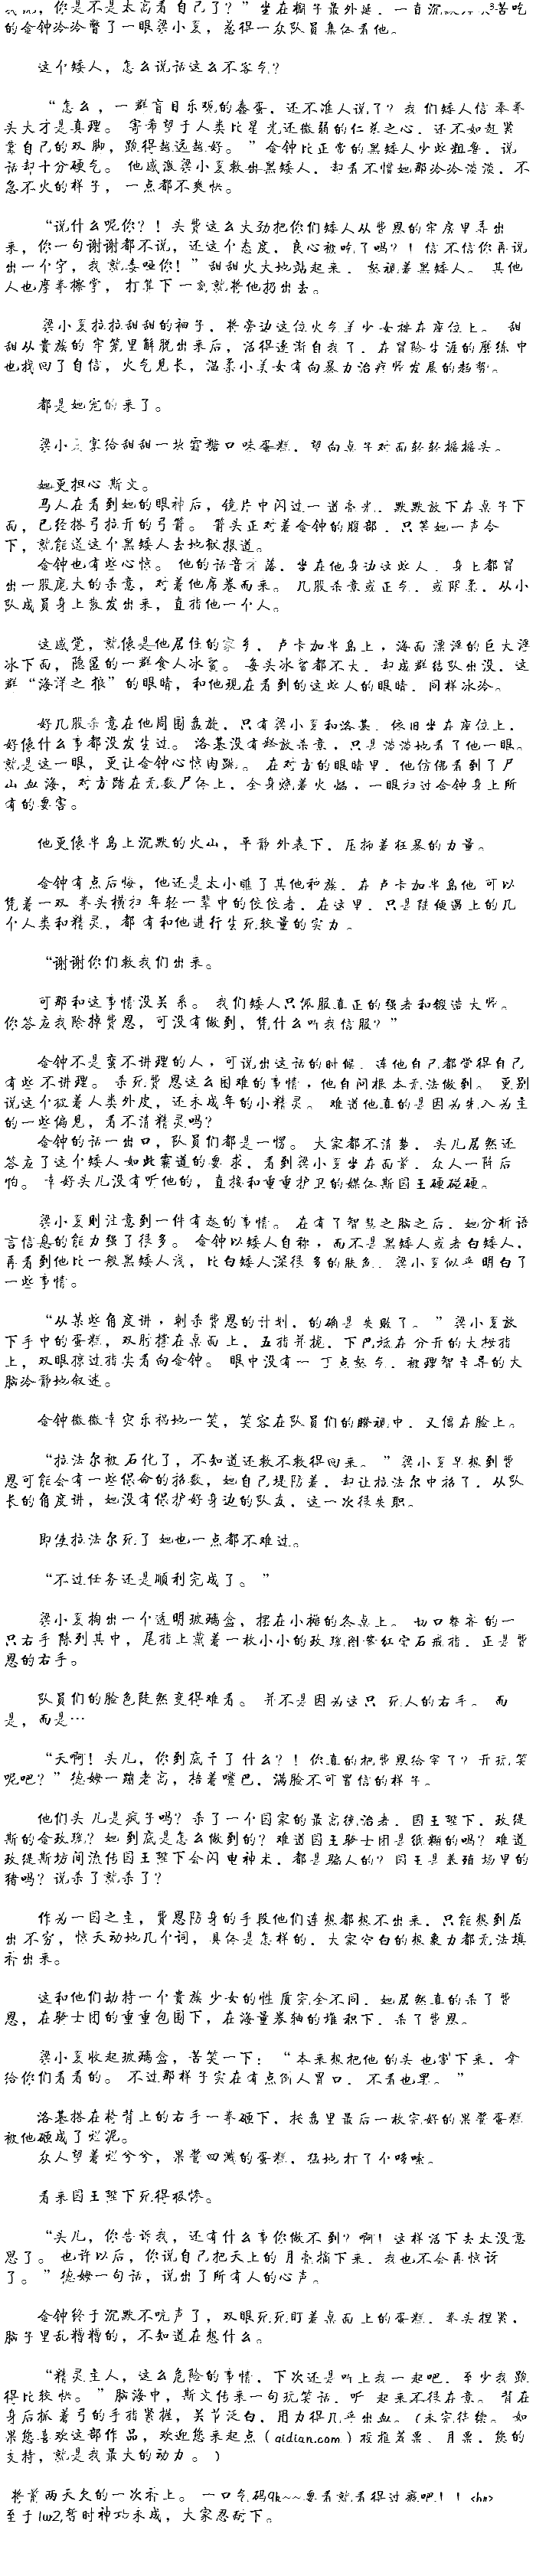 我说，你是不是太高看自己了？”坐在椅子最外延，一直沉默
的金钟冷冷瞥了一眼梁小夏，惹得一众队员集体看他。
这个矮人，怎么说话这么不客气？
“怎么，一群盲目乐观的蠢蛋，还不准人说了？我们矮人信奉拳
头大才是真理。寄希望于人类比星光还微弱的仁慈之心，还不如赶紧
靠自己的双脚，跑得越远越好。”金钟比正常的黑矮人少些粗鲁，说
话却十分硬气。他感激梁小夏救出黑矮人，却看不惯她那冷冷淡淡，不
急不火的样子，一点都不爽快。
“说什么呢你？！头费这么大劲把你们矮人从费恩的牢房里弄出
来，你一句谢谢都不说，还这个态度，良心被吃了吗？！信不信你再说
出一个字，我就毒哑你！”甜甜火大地站起来，怒视着黑矮人。其他
人也摩拳擦掌，打算下一刻就将他扔出去。
梁小夏拉拉甜甜的袖子，将旁边这位火气美少女按在座位上。甜
甜从贵族的牢笼里解脱出来后，活得逐渐自我了，在冒险生涯的磨练中
也找回了自信，火气见长，温柔小美女有向暴力治疗师发展的趋势。
都是她宠的来了。
梁小夏拿给甜甜一块霜糖口味蛋糕，望向桌子对面轻轻摇摇头。
她更担心斯文。
马人在看到她的眼神后，镜片中闪过一道亮光，默默放下在桌子下
面，已经搭弓拉开的弓箭。箭头正对着金钟的腹部，只等她一声令
下，就能送这个黑矮人去地狱报道。
金钟也有些心惊。他的话音才落，坐在他身边这些人，身上都冒
出一股庞大的杀意，对着他席卷而来。几股杀意或正气，或阴柔，从小
队成员身上散发出来，直指他一个人。
这感觉，就像是他居住的家乡，卢卡加半岛上，海面漂浮的巨大浮
冰下面，隐匿的一群食人冰鲨。每头冰鲨都不大，却成群结队出没，这
群“海洋之狼”的眼睛，和他现在看到的这些人的眼睛，同样冰冷。
好几股杀意在他周围盘旋，只有梁小夏和洛基，依旧坐在座位上，
好像什么事都没发生过。洛基没有释放杀意，只是淡淡地看了他一眼。
就是这一眼，更让金钟心惊肉跳。在对方的眼睛里，他仿佛看到了尸
山血海，对方踏在无数尸体上，全身燃着火焰，一眼扫过金钟身上所
有的要害。
他更像半岛上沉默的火山，平静外表下，压抑着狂暴的力量。
金钟有点后悔，他还是太小瞧了其他种族，在卢卡加半岛他可以
凭着一双拳头横扫年轻一辈中的佼佼者，在这里，只是随便遇上的几
个人类和精灵，都有和他进行生死较量的实力。
“谢谢你们救我们出来。
可那和这事情没关系。我们矮人只佩服真正的强者和锻造大师。
你答应我除掉费恩，可没有做到，凭什么听我信服？”
金钟不是蛮不讲理的人，可说出这话的时候，连他自己都觉得自己
有些不讲理。杀死费恩这么困难的事情，他自问根本无法做到。更别
说这个披着人类外皮，还未成年的小精灵。难道他真的是因为先入为主
的一些偏见，看不清精灵吗？
金钟的话一出口，队员们都是一愣。大家都不清楚，头儿居然还
答应了这个矮人如此霸道的要求，看到梁小夏坐在面前，众人一阵后
怕。幸好头儿没有听他的，直接和重重护卫的媒体斯国王硬碰硬。
梁小夏则注意到一件有趣的事情。在有了智慧之脑之后，她分析语
言信息的能力强了很多。金钟以矮人自称，而不是黑矮人或者白矮人，
再看到他比一般黑矮人浅，比白矮人深很多的肤色，梁小夏似乎明白了
一些事情。
“从某些角度讲，刺杀费恩的计划，的确是失败了。”梁小夏放
下手中的蛋糕，双肘撑在桌面上，五指并拢，下巴抵在分开的大拇指
上，双眼掠过指尖看向金钟。眼中没有一丁点怒气，被理智主导的大
脑冷静地叙述。
金钟微微幸灾乐祸地一笑，笑容在队员们的瞪视中，又僵在脸上。
“拉法尔被石化了，不知道还救不救得回来。”梁小夏早想到费
恩可能会有一些保命的招数，她自己堤防着，却让拉法尔中招了，从队
长的角度讲，她没有保护好身边的队友，这一次很失职。
即使拉法尔死了她也一点都不难过。
“不过任务还是顺利完成了。”
梁小夏掏出一个透明玻璃盒，摆在小褪的冬桌上。切口整齐的一
只右手陈列其中，尾指上戴着一枚小小的玫瑰图案红宝石戒指，正是费
恩的右手。
队员们的脸色陡然变得难看。并不是因为这只死人的右手。而
是，而是…
“天啊！头儿，你到底干了什么？！你真的把费恩给宰了？开玩笑
呢吧？”德姆一蹦老高，捂着嘴巴，满脸不可置信的样子。
他们头儿是疯子吗？杀了一个国家的最高统治者，国王陛下，玫缇
斯的金玫瑰？她到底是怎么做到的？难道国王骑士团是纸糊的吗？难道
玫缇斯坊间流传国王陛下会闪电神术，都是骗人的？国王是养殖场里的
猪吗？说杀了就杀了？
作为一国之主，费恩防身的手段他们连想都想不出来，只能想到层
出不穷，惊天动地几个词，具体是怎样的，大家空白的想象力都无法填
补出来。
这和他们劫持一个贵族少女的性质完全不同，她居然真的杀了费
恩，在骑士团的重重包围下，在海量卷轴的堆积下，杀了费恩。
梁小夏收起玻璃盒，苦笑一下：“本来想把他的头也割下来，拿
给你们看看的。不过那样子实在有点倒人胃口，不看也罢。”
洛基搭在椅背上的右手一拳砸下，托盘里最后一枚完好的果酱蛋糕
被他砸成了烂泥。
众人望着烂兮兮，果酱四溅的蛋糕，猛地打了个哆嗦。
看来国王陛下死得极惨。
“头儿，你告诉我，还有什么事你做不到？啊！这样活下去太没意
思了。也许以后，你说自己把天上的月亮摘下来，我也不会再惊讶
了。”德姆一句话，说出了所有人的心声。
金钟终于沉默不吭声了，双眼死死盯着桌面上的蛋糕，拳头捏紧，
脑子里乱糟糟的，不知道在想什么。
“精灵主人，这么危险的事情，下次还是叫上我一起吧，至少我跑
得比较快。”脑海中，斯文传来一句玩笑话，听起来不很在意。背在
身后抓着弓的手指紧握，关节泛白，用力得几乎出血。（未完待续。如
果您喜欢这部作品，欢迎您来起点（qidian.com）投推荐票、月票，您的
支持，就是我最大的动力。）
将前两天欠的一次补上。一口气码9k~~要看就看得过瘾吧！！<hr>
至于1w2,暂时神功未成，大家忍耐下。